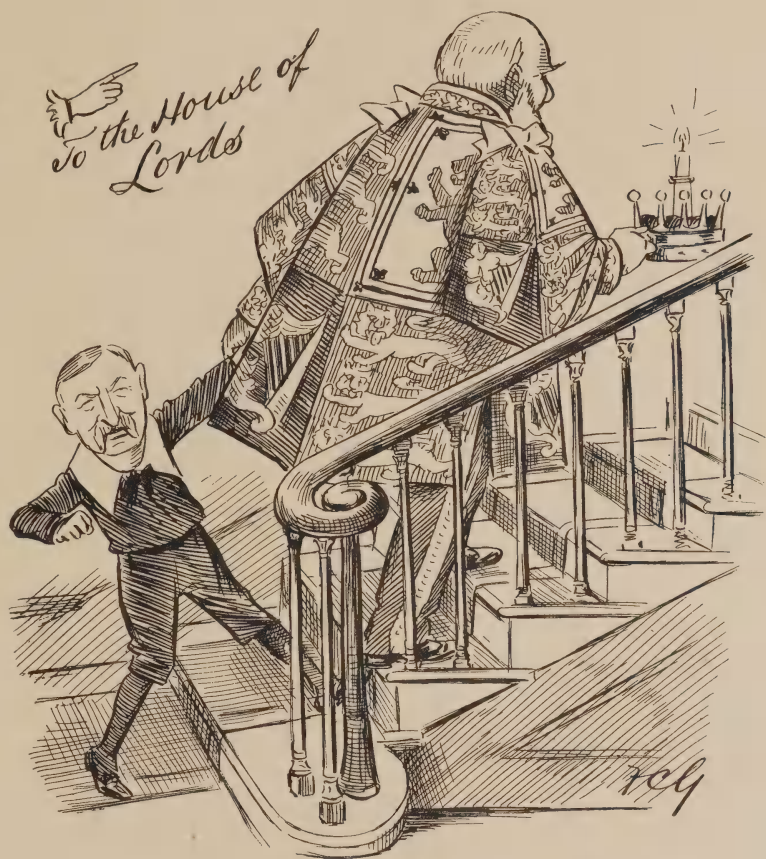 To the House of
Lords
FCG